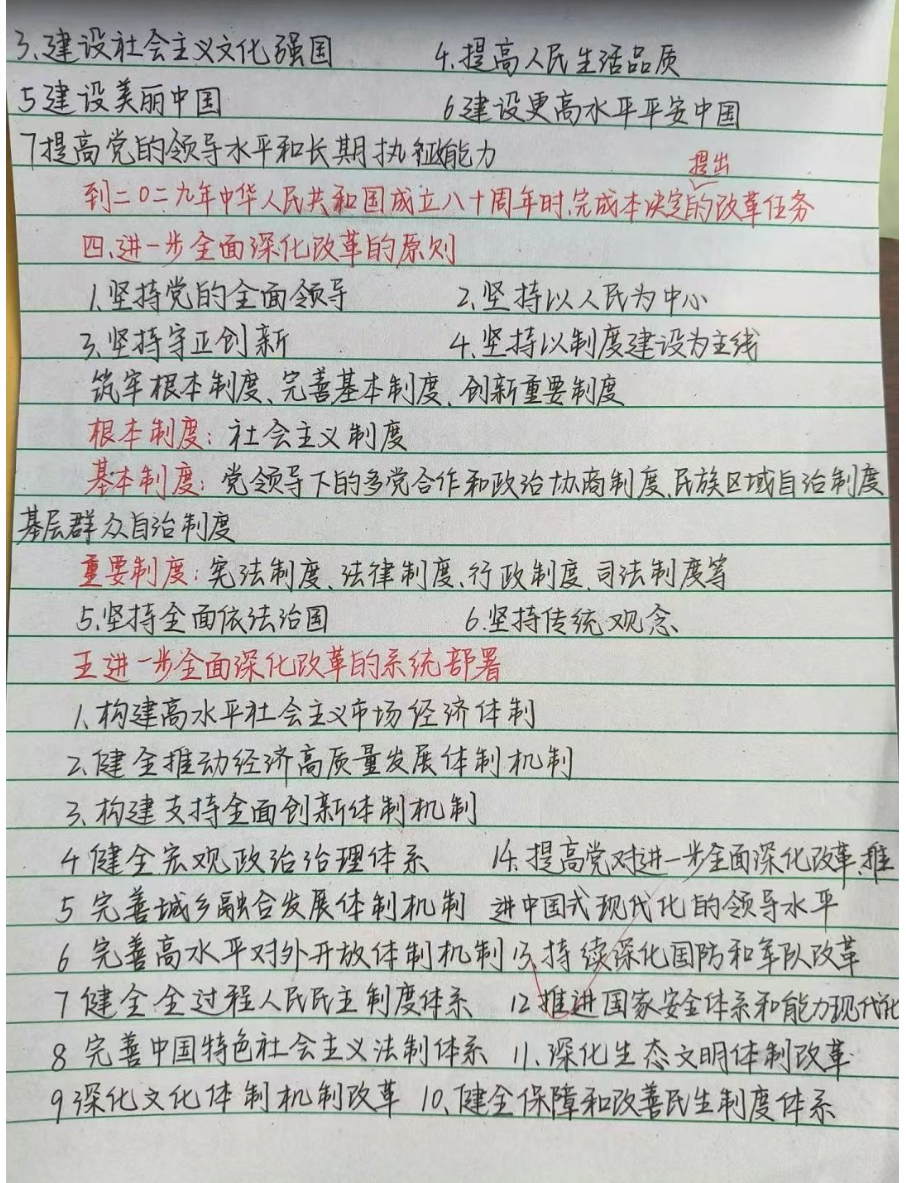 3、建设社会主义文化强国 4、提高人民生活品质
5建设美丽中国 6建设更高水平平安中国
7提高党的领导水平和长期执政能力
提出
到二〇二九年中华人民共和国成立八十周年时、完成本决定的改革任务
四、进一步全面深化改革的原则
1、坚持党的全面领导 2、坚持以人民为中心
3、坚持守正创新 4、坚持以制度建设为主线
筑牢根本制度、完善基本制度、创新重要制度
根本制度：社会主义制度
基本制度：党领导下的多党合作和政治协商制度、民族区域自治制度
基层群众自治制度
重要制度：宪法制度、法律制度、行政制度、司法制度等
5、坚持全面依法治国 6、坚持传统观念
五进一步全面深化改革的系统部署
1、构建高水平社会主义市场经济体制
2、健全推动经济高质量发展体制机制
3、构建支持全面创新体制机制
4健全宏观政治治理体系 14、提高党对进一步全面深化改革、推
5完善城乡融合发展体制机制 进中国式现代化的领导水平
6完善高水平对外开放体制机制 13、持续深化国防和军队改革
7健全全过程人民民主制度体系 12推进国家安全体系和能力现代化
8完善中国特色社会主义法制体系 11、深化生态文明体制改革
9深化文化体制机制改革 10、健全保障和改善民生制度体系